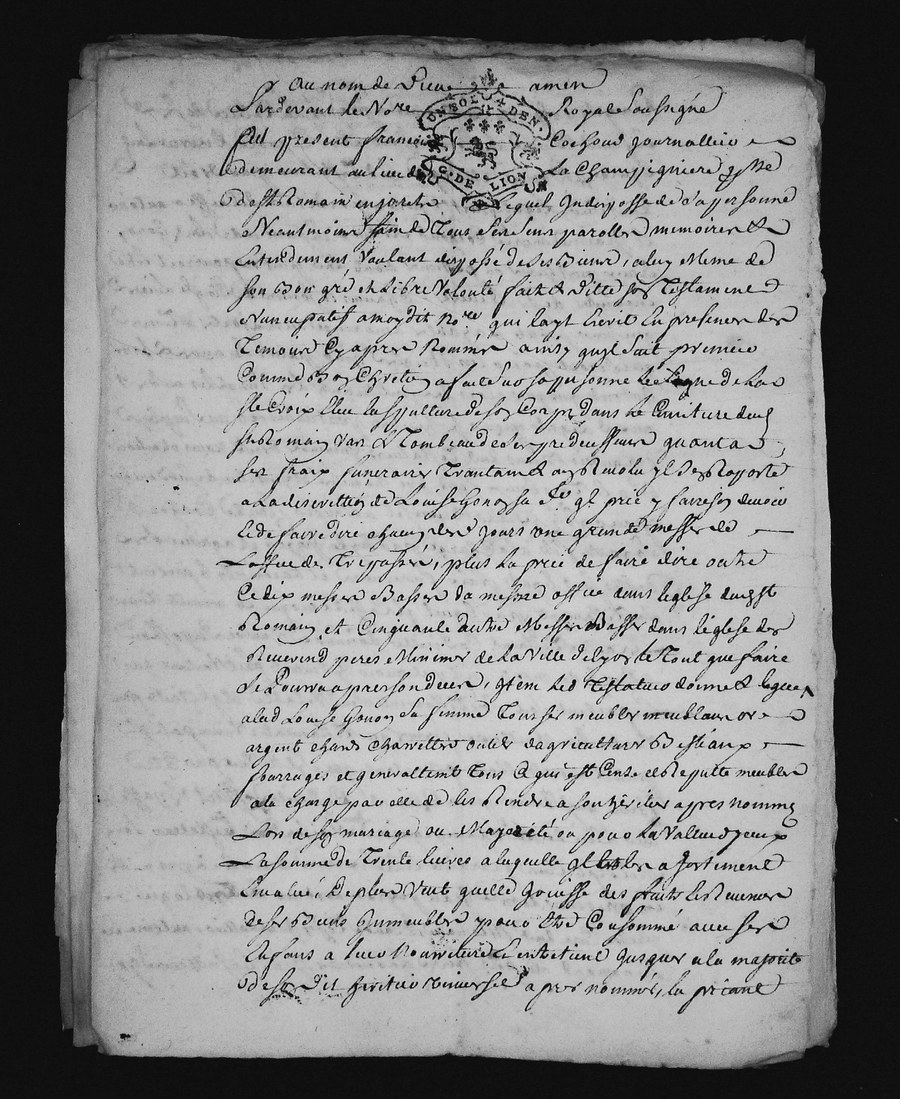 Au nom de Dieu amen
Pardevant le No.re Royal Soussigné
UN SOL DEN.
G. DE LION
fut present francois Cochoud journallier
demeurant au lieu de La Champignere p.sse
de st Romain en jarets lequel Indispossé de sa personne
Neautmoins sain de Tous ses sens parolles memoires &
Entendement Voulant disposse de ses Biens, a luy Meme de
son Bon gré et Libre Volonté fait & Ditté son Testament
Nuncupatif a moydit No.re qui layt Ecrit En presence des
Temoins Cy apres Nommés ainsy quil suit premier
Comme Bon Chretien a fait sur sa personne le signe de la
ste Croix Elleu la sepulture de son Corps dans le Cimitiere dud
st Romain vas & Tombeaud de ses predecesseurs quant a
ses fraix funeraires Trantain & an Revolu il s'en Raporte
a La discrettion de Louise Gonon sa fe. ql prie y faire son devoir
Et de faire dire chacun des jours une grande messe de
Loffice des Trepassés, plus la prie de faire dire outre
Ce dix messes Basses du mesme office dans leglise dud st
Romain et Cinquante autre Messes Basses dans l'eglise des
Reverend peres Minimes de la Ville de lyon le Tout que faire
se Pourra apres son deces, item led Testateur donne & legue
a lad Louise Gonon sa femme Tous ses meubles meublans or
argent chards charettes outils dagriculture Bestiaux
fourrages et generallement Tous Ce qui est Cense et Repute meubles
a la charge par elle de les Rendre a son heritier apres nommé
Lors de son mariage ou Majorité ou pour la Valleur d'yceux
La somme de Trente livres a laquelle il les a fortement
Evalué, De plus Veut quelle Jouisse des fruits et Revenus
de ses Biens Immeubles pour Etre Consommé avec ses
Enfans a leur Nourriture et entretient Jusques a la majorité
de son Dit heritier Universel apres nommé, la priant